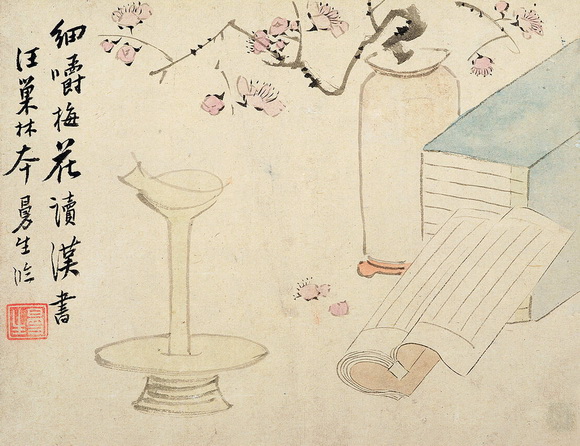 細嚼梅花讀漢書
汪巢林本
曼生臨
曼生